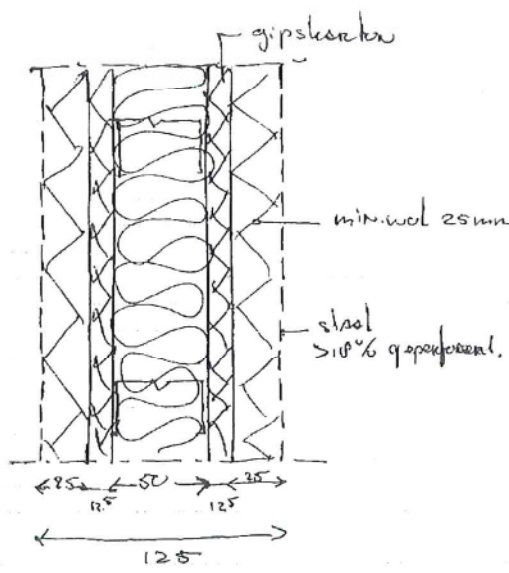 gipskarton
min.wol 25mm
staal
>18% geperforeerd.
25 12.5 50 12.5 25
125